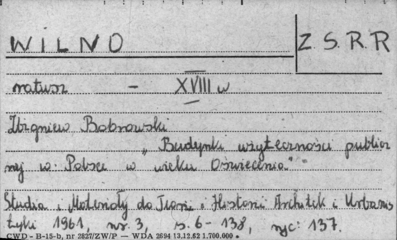 WILNO
Z S. R. R
ratusz - XVIII w
Zbigniew Bobrowski
„Budynki użyteczności publicz
nej w Polsce w wieku Oświecenia."
Studia i Materiały do Teorii i Historii Architek i Urbanis
tyki 1961, nr. 3, s. 6-138, ryc: 137.
CWD-B-15-b, nr 2627/ZW/P — WDA 2694 13.12.62 1.700.000 •